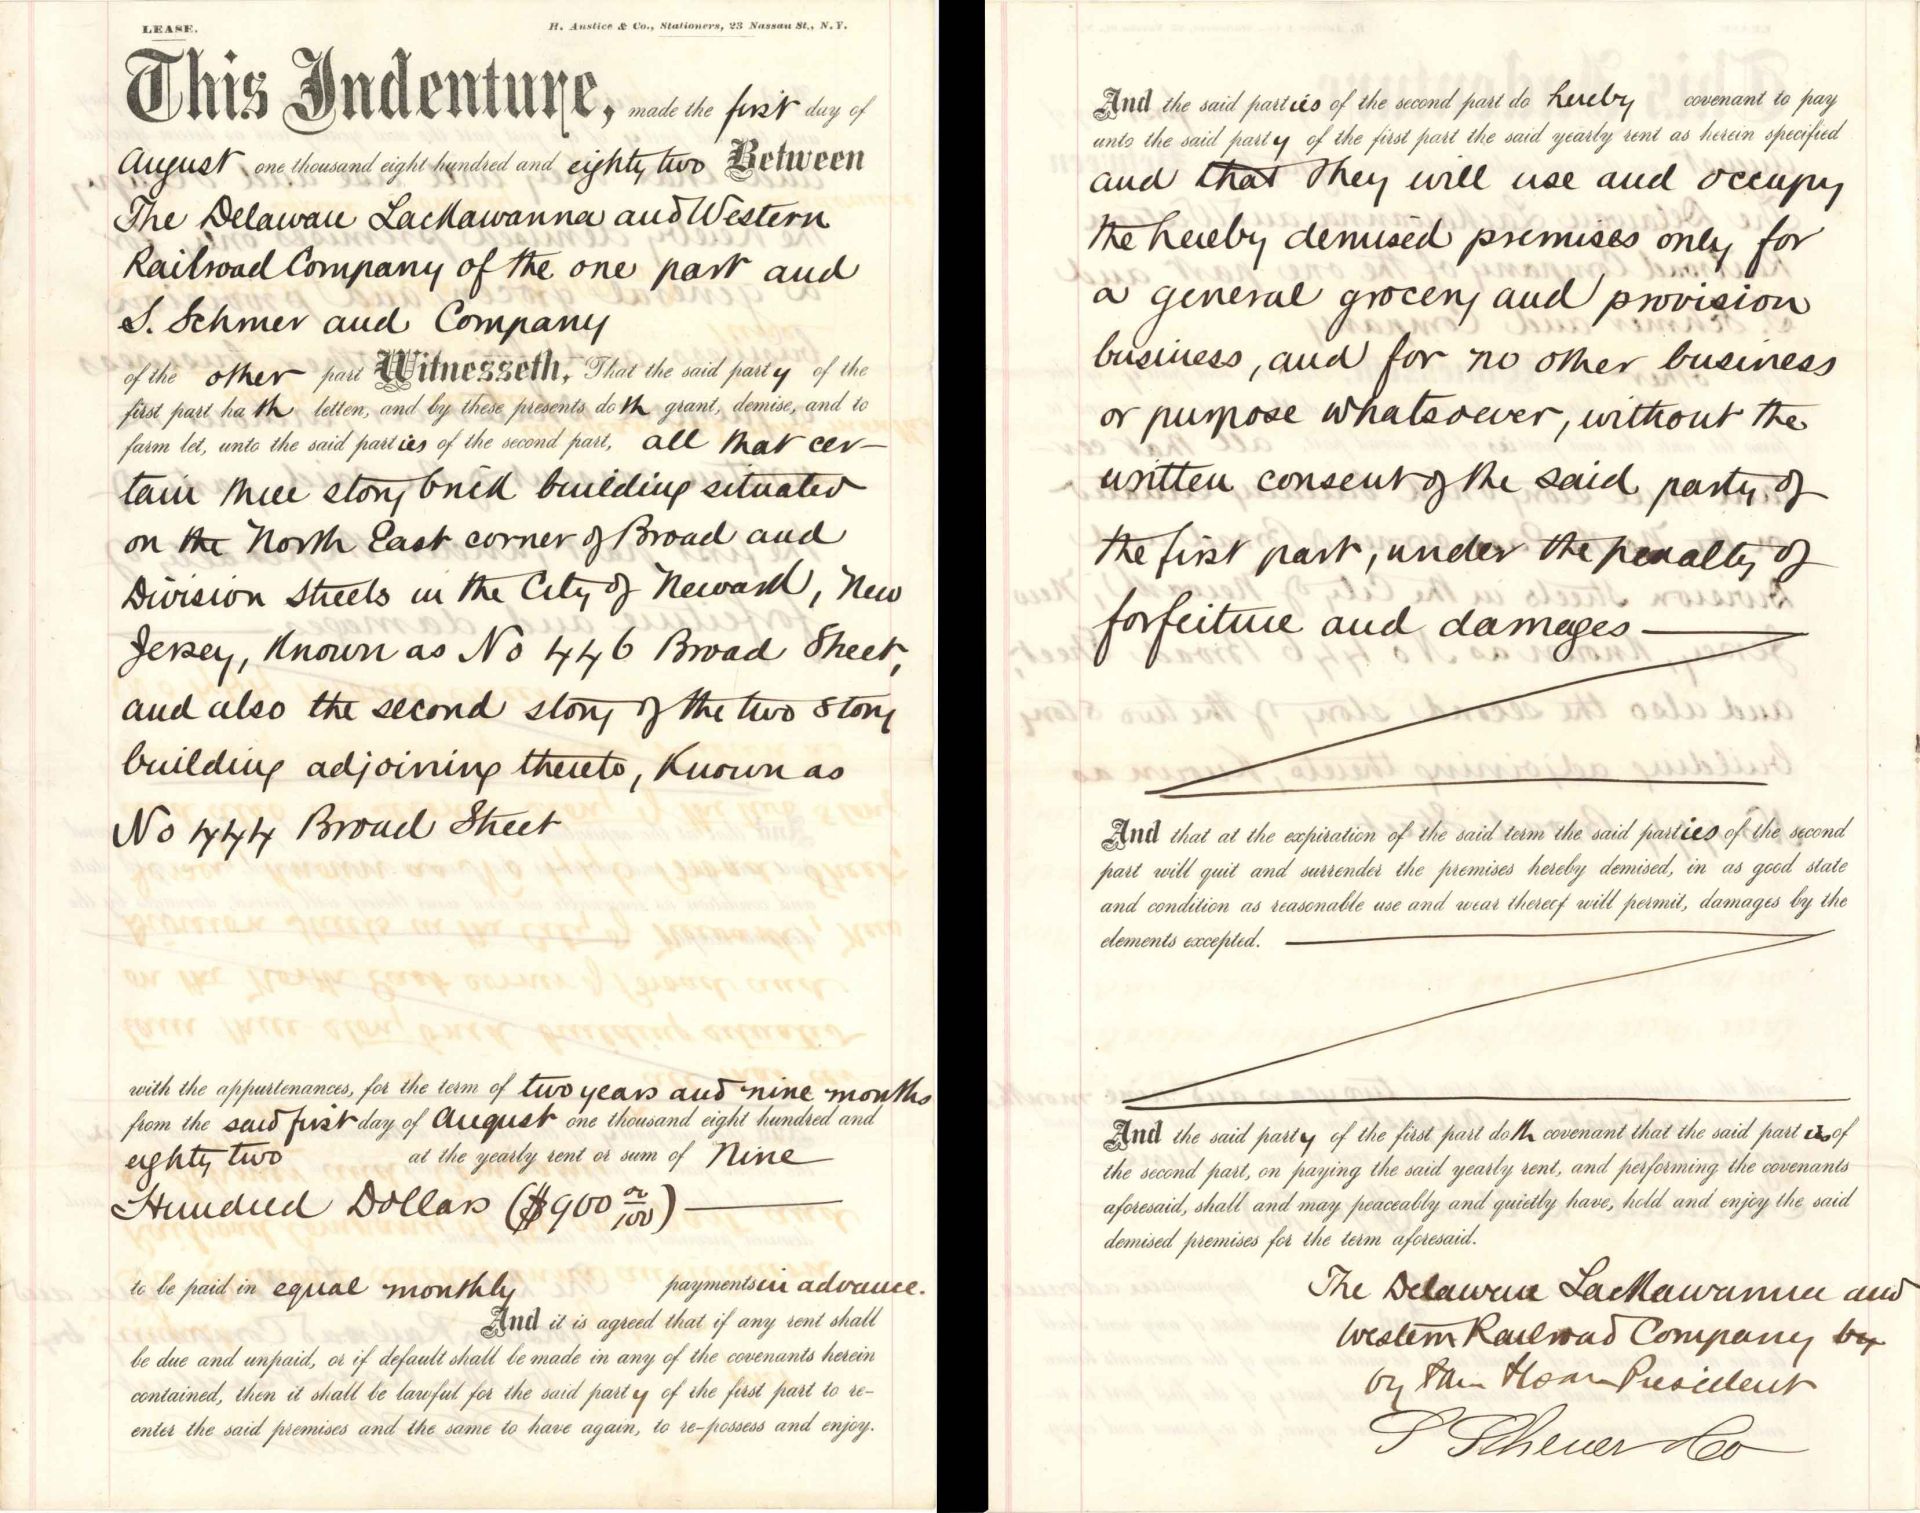 LEASE.
H. Anstice & Co., Stationers, 23 Nassau St., N.Y.
This Indenture, made the first day of
August one thousand eight hundred and eighty two Between
The Delaware Lackawanna and Western
Railroad Company of the one part and
S. Schmer and Company
of the other part Witnesseth, That the said party of the
first part hath letten, and by these presents doth grant, demise, and to
farm let, unto the said parties of the second part, all that cer-
tain three story brick building situated
on the North East corner of Broad and
Division Streets in the City of Newark, New
Jersey, Known as No 446 Broad Street,
and also the second story of the two Story
building adjoining thereto, Known as
No 444 Broad Street
with the appurtenances, for the term of two years and nine months
from the said first day of August one thousand eight hundred and
eighty two at the yearly rent or sum of Nine
Hundred Dollars ($900 00/100)
to be paid in equal monthly payments in advance.
And it is agreed that if any rent shall
be due and unpaid, or if default shall be made in any of the covenants herein
contained, then it shall be lawful for the said party of the first part to re-
enter the said premises and the same to have again, to re-possess and enjoy.
And the said parties of the second part do hereby covenant to pay
unto the said party of the first part the said yearly rent as herein specified
and that they will use and occupy
the hereby demised premises only for
a general grocery and provision
business, and for no other business
or purpose whatsoever, without the
written consent of the said party of
the first part, under the penalty of
forfeiture and damages
And that at the expiration of the said term the said parties of the second
part will quit and surrender the premises hereby demised, in as good state
and condition as reasonable use and wear thereof will permit, damages by the
elements excepted.
And the said party of the first part doth covenant that the said parties of
the second part, on paying the said yearly rent, and performing the covenants
aforesaid, shall and may peaceably and quietly have, hold and enjoy the said
demised premises for the term aforesaid.
The Delaware Lackawanna and
Western Railroad Company by
by President
S Scheuer & Co